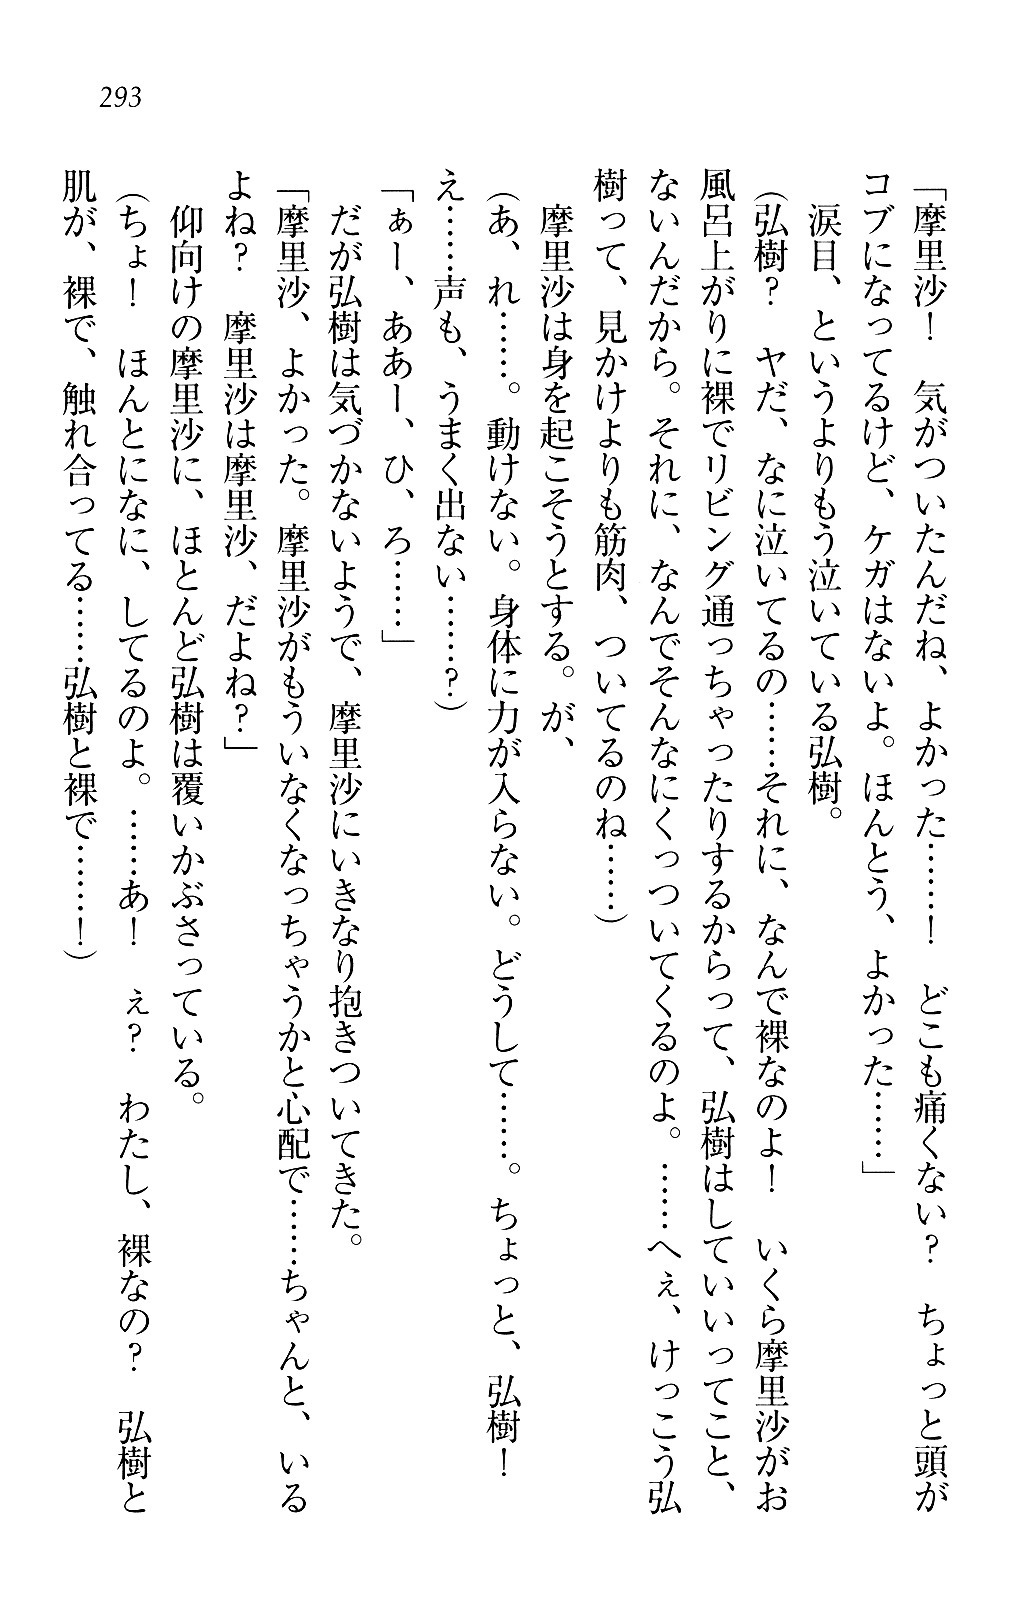 293
「摩里沙！　気がついたんだね、よかった……！　どこも痛くない？　ちょっと頭が
コブになってるけど、ケガはないよ。ほんとう、よかった……」
　涙目、というよりもう泣いている弘樹。
（弘樹？　ヤだ、なに泣いてるの……それに、なんで裸なのよ！　いくら摩里沙がお
風呂上がりに裸でリビング通っちゃったりするからって、弘樹はしていいってこと、
ないんだから。それに、なんでそんなにくっついてくるのよ。……へぇ、けっこう弘
樹って、見かけよりも筋肉、ついてるのね……）
　摩里沙は身を起こそうとする。が、
（あ、れ……。動けない。身体に力が入らない。どうして……。ちょっと、弘樹！
え……声も、うまく出ない……？）
「ぁー、ああー、ひ、ろ……」
　だが弘樹は気づかないようで、摩里沙にいきなり抱きついてきた。
「摩里沙、よかった。摩里沙がもういなくなっちゃうかと心配で……ちゃんと、いる
よね？　摩里沙は摩里沙、だよね？」
　仰向けの摩里沙に、ほとんど弘樹は覆いかぶさっている。
（ちょ！　ほんとになに、してるのよ。……あ！　ぇ？　わたし、裸なの？　弘樹と
肌が、裸で、触れ合ってる……弘樹と裸で……！）